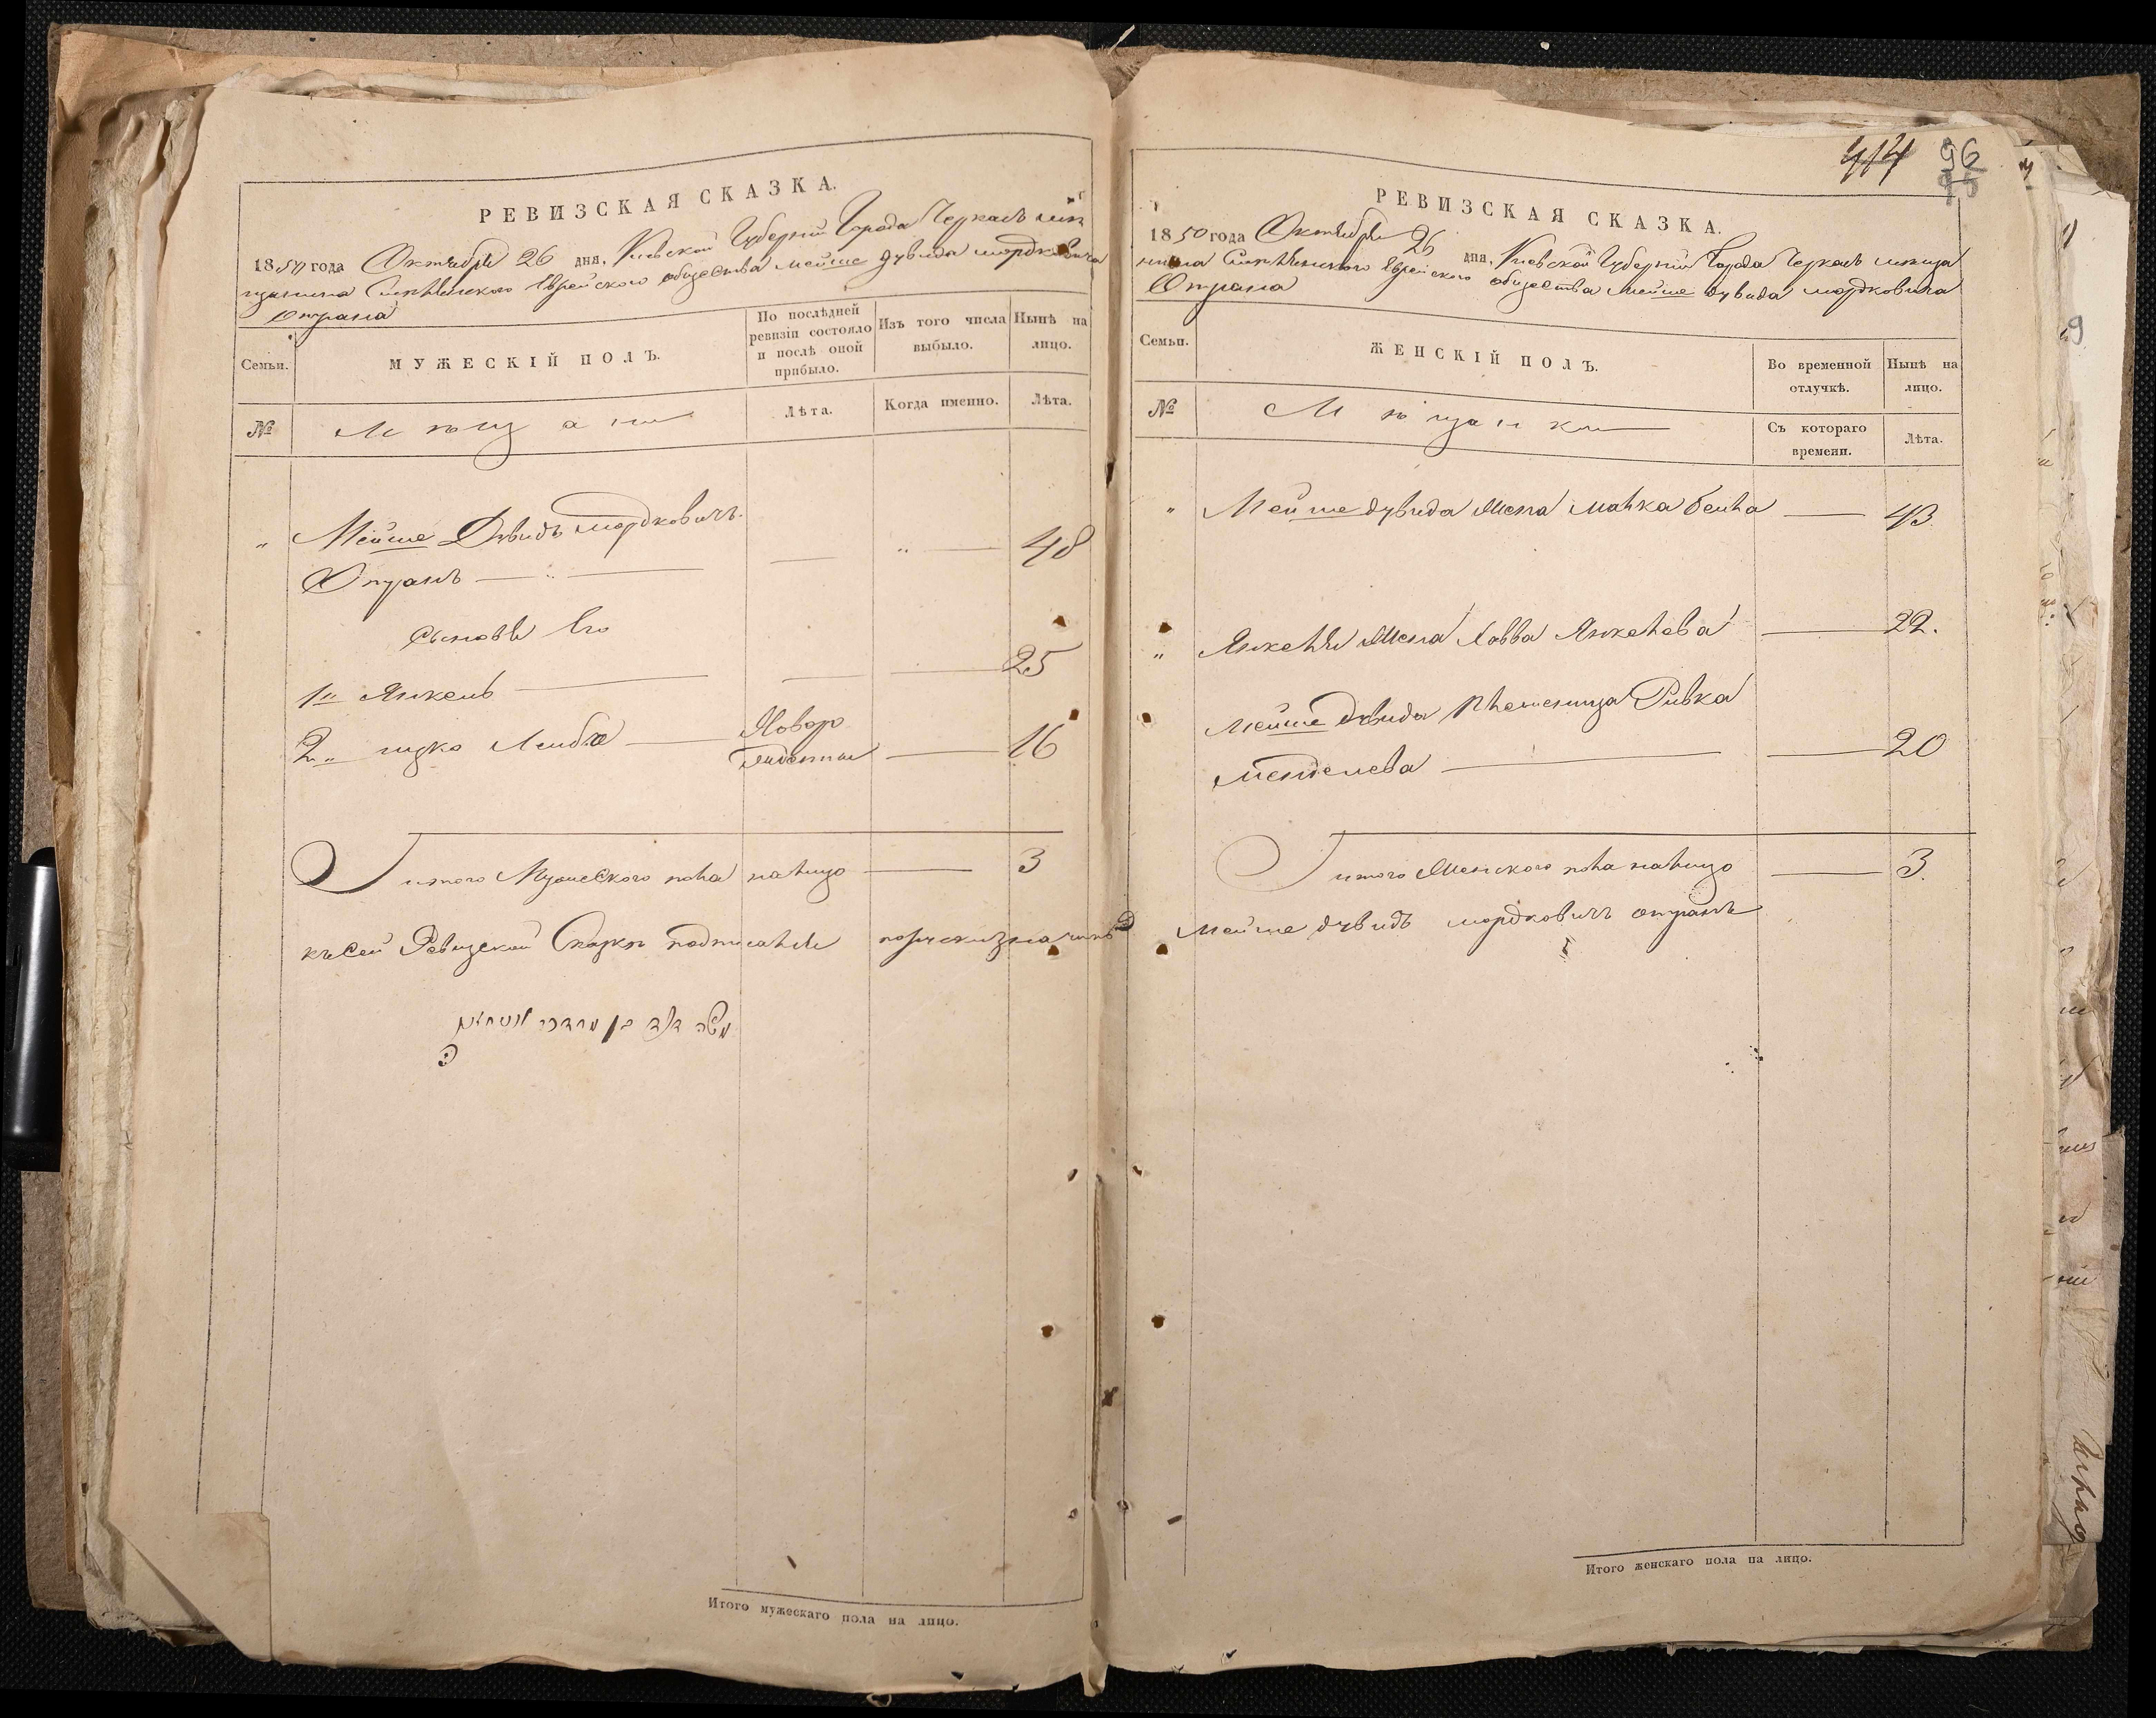 РЕВИЗСКАЯ СКАЗКА.
1850 года Октября 26 дня. Киевской Губернии Города Черкасъ мѣ
щанина Смѣлянского Еврейского общества Мейше Дувида Мордковича
Отрана
Семьи.
МУЖЕСКІЙ ПОЛЪ.
По послѣдней ревизіи состояло и послѣ оной прибыло.
Изъ того числа выбыло.
Нынѣ на лицо.
№
Мѣщане
Лѣта.
Когда именно.
Лѣта.
" Мейше Дувидъ Мордковичъ
Отранъ — " — 48
Сыновья Его
1й Янкель — 25
2й Лейба — 16
Итого Мужеского пола налицо — 3
Къ сей Ревизской Сказкѣ подписался
Итого мужескаго пола на лицо.
414 96
РЕВИЗСКАЯ СКАЗКА.
1850 года Октября 26 дня, Киевской Губернии Города Черкасъ мѣща
нина Смѣлянского Еврейского общества Мейше Дувида Мордковича
Отрана
Семьи.
ЖЕНСКІЙ ПОЛЪ.
Во временной отлучкѣ.
Нынѣ на лицо.
№
Мѣщанки
Съ котораго времени.
Лѣта.
" Мейше Дувида жена Малка — 43
" Янкеля жена Хавва Янкелева — 22.
Мейше Дувида племеница Ривка
Менделева — 20
Итого Женского пола налицо — 3.
Мейше Дувидъ Мордковичъ Отранъ
Итого женскаго пола на лицо.